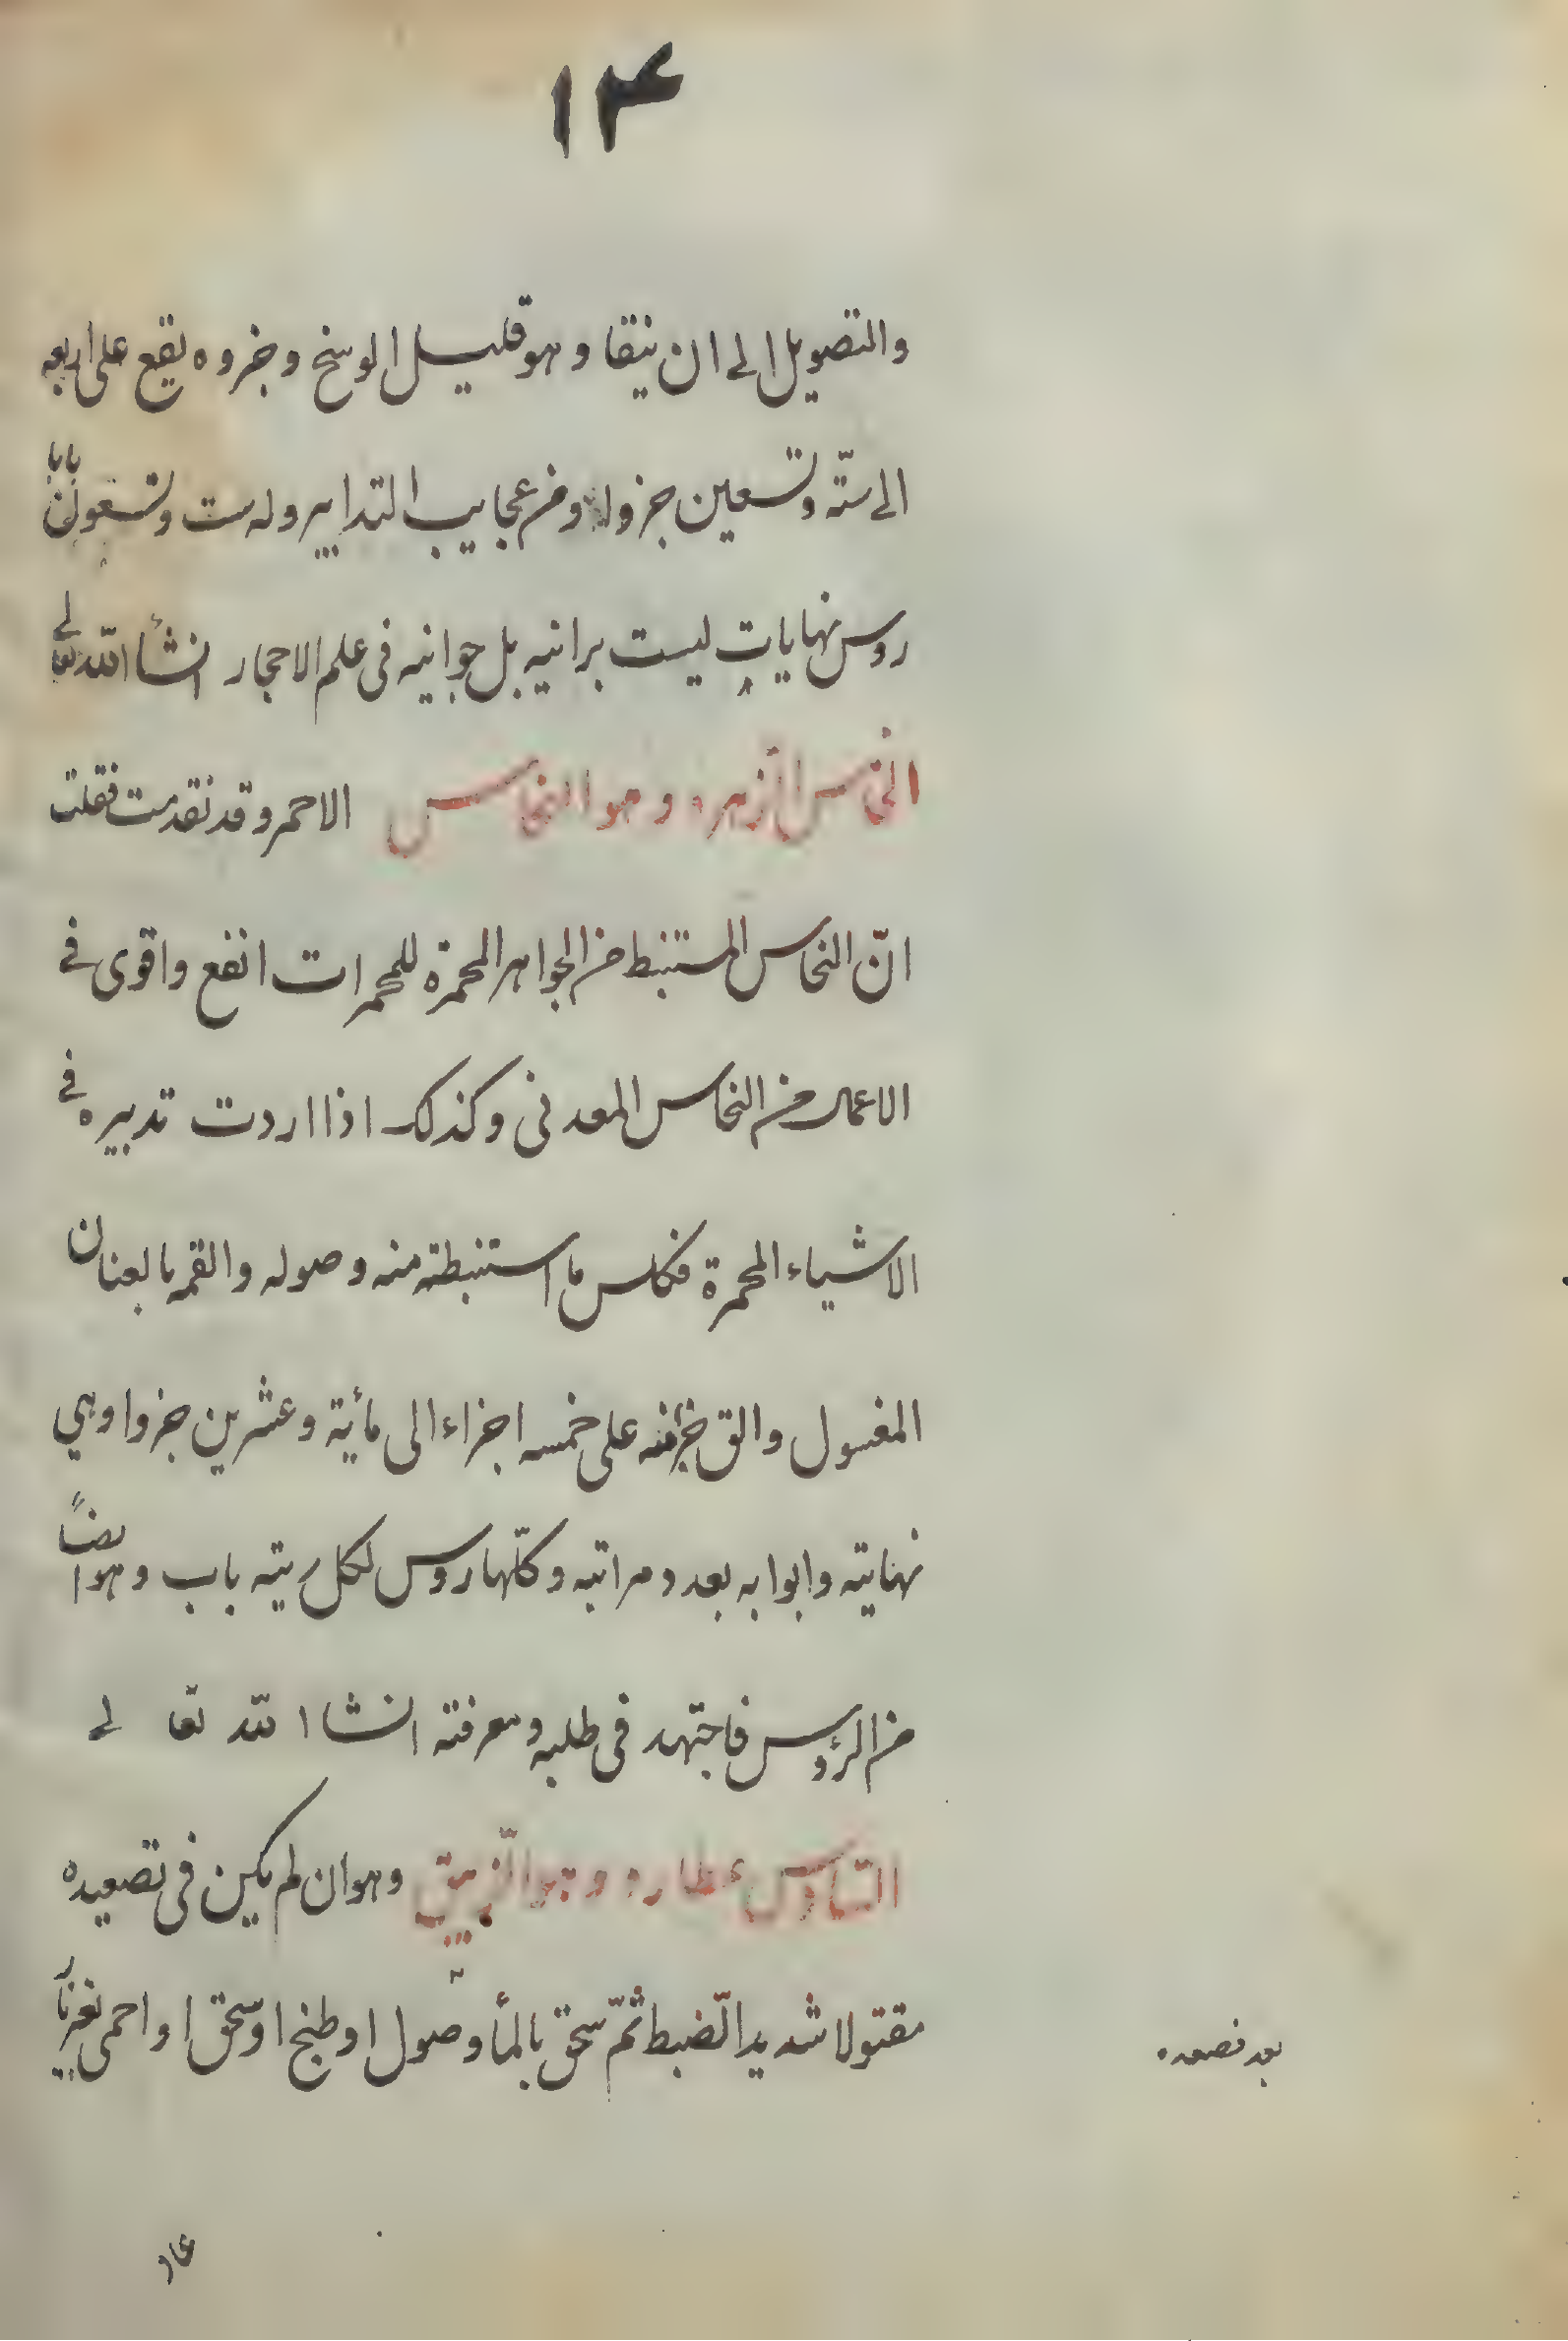 ۱۴
والتصويل الى ان ينقا وهو قليل الوسخ وجزوه يقع على اربعه
الى ستّه وتسعين جزوا ومن عجايب التدابير وله ست وتسعون بابا
روس نهايات ليست برانيه بل جوانيه فى علم الاحجار انشأ اللّه تعالى
الخامس الزهره وهو النحاس الاحمر وقد تقدمت فقلت
انّ النحاس المستنبط من الجواهر المحمرة للمحمرات انفع واقوى فى
الاعمال من النحاس المعدنى وكذلك اذا اردت تدبيره فى
الاشياء المحمرة فكلس ما استنبطته منه وصوله والقمه بالعنان
المغسول والق جزء منه على خمسه اجزاء الى مأية وعشرين جزوا وهي
نهايته وابوابه بعدد مراتبه وكلّها روس لكل ريته باب وهو ايضاً
من الرؤس فاجتهد فى طلبه ومعرفته انشا اللّه تعالى
السّادس عطارد وهو الزيبق وهو ان لم يكن فى تصعيده
مقتولا شديد الضبط ثمّ سحق بالمأ وصول او طبخ او سحق او احمى بغير نار
بعد تصعده
عاد